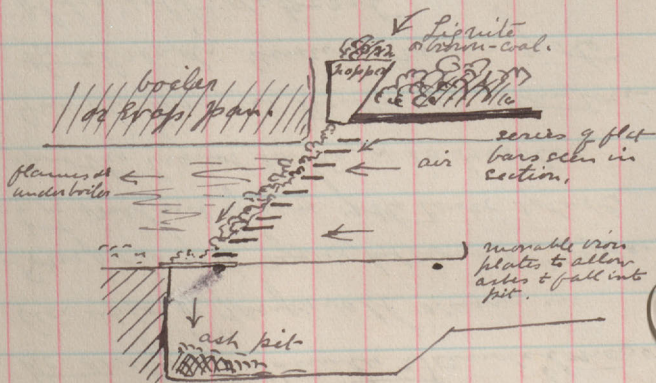 Lignite
or brown-coal.
hopper
boiler
or Evap. pan.
series of flat
bars seen in
section.
air
flames
under boiler
movable iron
plates to allow
ashes to fall into
pit.
ash pit